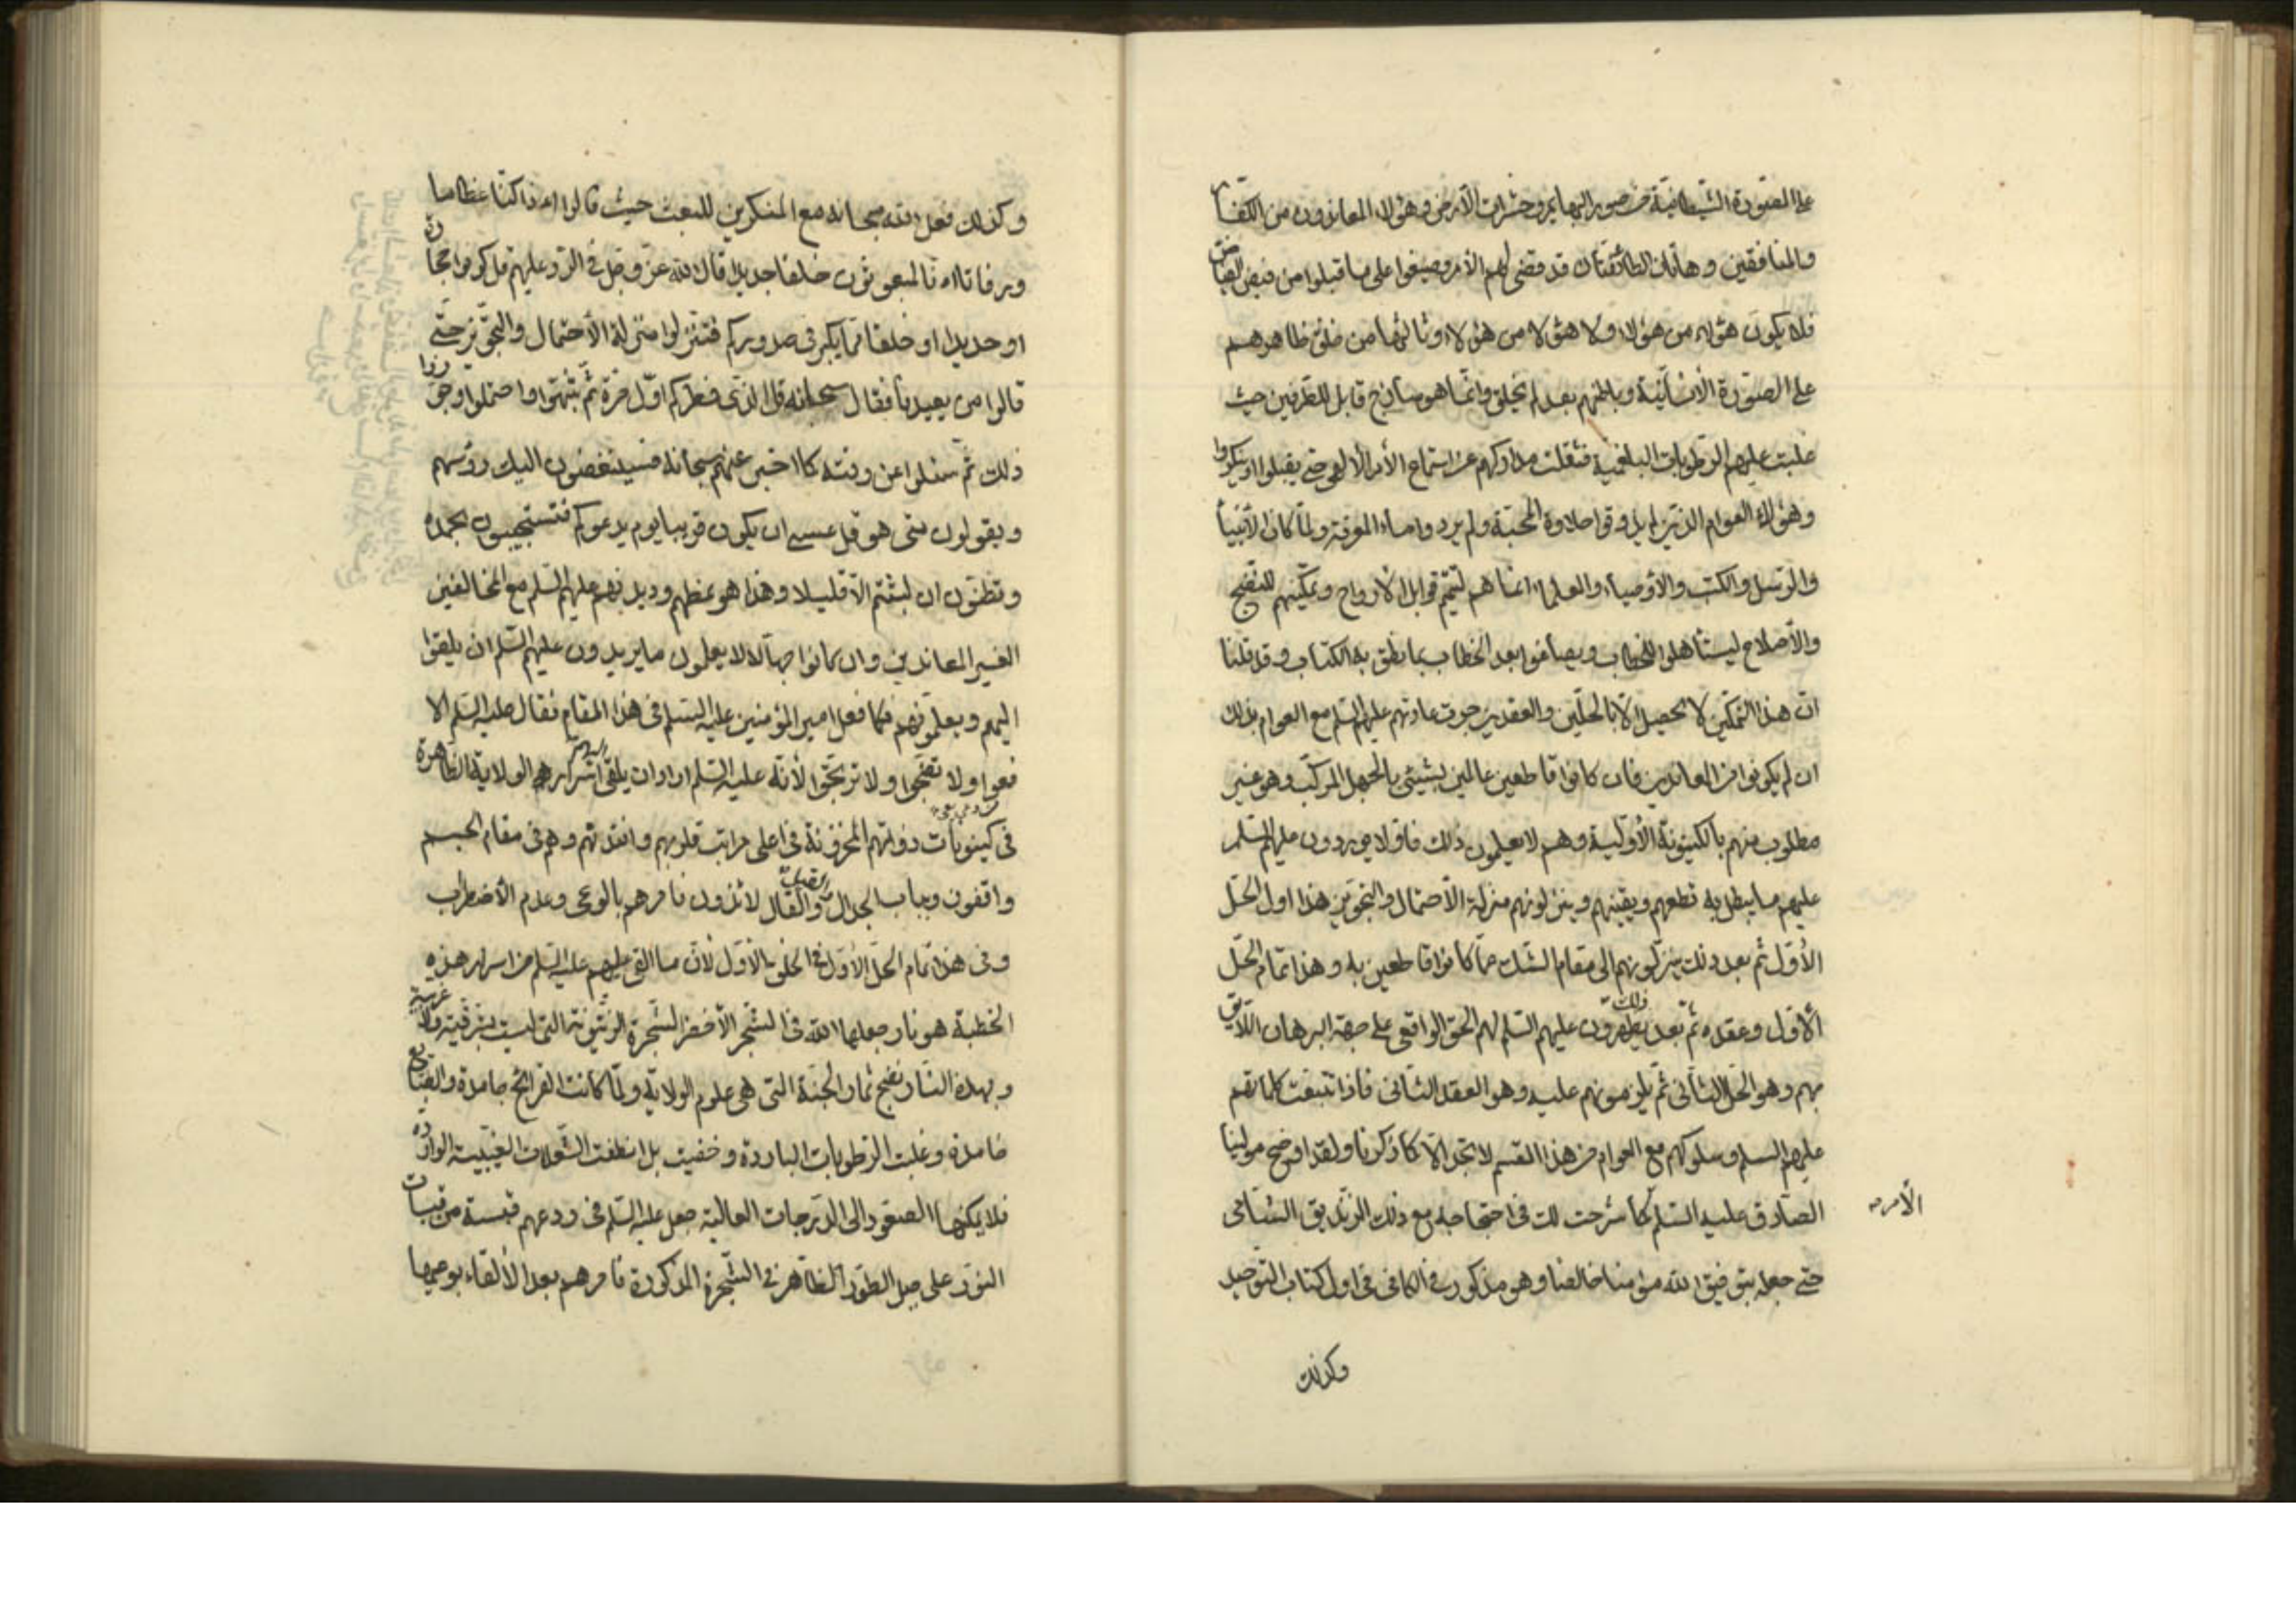 على الصورة الشيطانية من صور البهايم وحشرات الأرض وهؤلاء المعاندون من الكفار
والمنافقين وهاتان الطائفتان قد قضى لهم الأمر وصيغوا على ما قبلوا من فيض الفياض
فلا يكون هؤلاء من هؤلاء ولا هؤلاء من هؤلاء وثالثها من خلق ظاهرهم
على الصورة الأنسانية وباطنهم بعد لم يخلق وانما هو ساذج قابل للطرفين حيث
غلبت عليهم الرطوبات البلغمية فثقلت مداركهم عن استماع الأمر الألهي حتى يقبلوا او ينكروا
وهؤلاء العوام الذين لم يذوقوا حلاوة المحبة ولم يردوا ماء المعرفة ولما كان الأنبياء
والرسل والكتب والأوصياء والعلماء انما هم لتتميم قوابل الأرواح وتمكينهم للنضج
والأصلاح ليستأهلوا للخطاب ويصاغوا بعد الخطاب بما نطق به الكتاب وقد قلنا
ان هذا التمكين لا يحصل الا بالحلين والعقدين جرت عادتهم عليهم السلم مع العوام بذلك
ان لم يكونوا من المعاندين فان كانوا قاطعين عالمين بشيئ بالجهل المركب وهو غير
مطلوب منهم بالكينونة الأولية وهم لا يعلمون ذلك فاولا يوردون عليهم السلم
عليهم ما يبطل به قطعهم ويقينهم وينزلونهم منزلة الأحتمال والتجويز هذا اول الحل
الأول ثم بعد ذلك ينزلونهم الى مقام الشك مما كانوا قاطعين به وهذا تمام الحل
الأول وعقده ثم بعد ذلك يظهرون عليهم السلم لهم الحق الواقعي على جهة البرهان اللايق
بهم وهو الحل الثاني ثم يلزمونهم عليه وهو العقد الثاني فاذا تتبعت كلماتهم
عليهم السلم وسلوكهم مع العوام من هذا القسم لا تجد الا كما ذكرنا ولقد اوضح مولينا
الصادق عليه السلم كما شرحت لك في احتجاجه مع ذلك الزنديق الشامي
الأمر
حتى جعله بتوفيق الله مؤمنا خالصا وهو مذكور في الكافي في اول كتاب التوحيد
وكذلك
وكذلك فعل الله سبحانه مع المنكرين للبعث حيث قالوا اءذا كنا عظاما
ورفاتا اءنا لمبعوثون خلقا جديدا قال الله عز وجل في الرد عليهم قل كونوا حجارة
او حديدا او خلقا مما يكبر في صدوركم فتنزلوا منزلة الأحتمال والتجويز حتى
قالوا من يعيدنا فقال سبحانه قل الذي فطركم اول مرة ثم تنبهوا واحتملوا وجوزوا
ذلك ثم سئلوا عن وقته كما اخبر عنهم سبحانه فسينغضون اليك رؤسهم
ويقولون متى هو قل عسى ان يكون قريبا يوم يدعوكم فتستجيبون بحمده
وتظنون ان لبثتم الا قليلا وهذا هو نمطهم وديدنهم عليهم السلم مع المخالفين
الغير المعاندين وان كانوا جهالا لا يعلمون ما يريدون عليهم السلم ان يلقوا
اليهم ويعلمونهم فكما فعل امير المؤمنين عليه السلم في هذا المقام فقال عليه السلم الا
فعوا ولا تضجوا ولا ترتجوا لأنه عليه السلم اراد ان يلقى اليهم اسرار الولاية الظاهرة
في كينونات ذواتهم المخزونة في اعلى مراتب قلوبهم وافئدتهم وهم في مقام الجسم
واقفون وبباب الجدال والقيل والقال لائذون فامرهم بالوعى وعدم الأضطراب
وفي هذا تمام الحل الأول في الخلق الأول لأن ما القى عليهم عليه السلم من اسرار هذه
الخطبة هو نار جعلها الله في الشجر الأخضر الشجرة الزيتونة التي ليست بشرقية ولا غربية
وبهذه النار نضج ثمار الجنة التي هي علوم الولاية ولما كانت القرايح جامدة والطبايع
خامدة وغلبت الرطوبات الباردة وخفيت بل انطفت الشعلات الغيبية الواردة
فلا يمكنها الصعود الى الدرجات العالية جعل عليه السلم في روعهم قبسة من قبسات
النور على جبل الطور الظاهر في الشجرة المذكورة فامرهم بعد الألقاء بوعيها